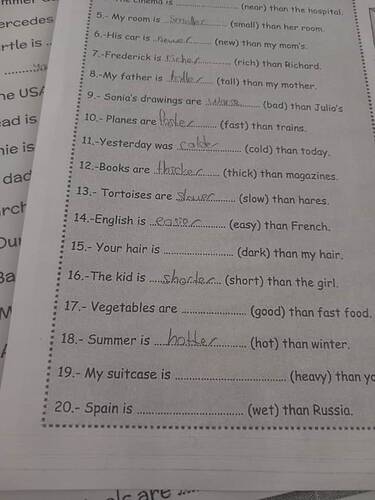 (near) than the hospital.
5.- My room is smaller (small) than her room.
6.-His car is newer (new) than my mom's.
7.-Frederick is richer (rich) than Richard.
8.-My father is taller (tall) than my mother.
9.- Sonia's drawings are worse (bad) than Julia's
10.- Planes are faster (fast) than trains.
11.-Yesterday was colder (cold) than today.
12.-Books are thicker (thick) than magazines.
13.- Tortoises are slower (slow) than hares.
14.-English is easier (easy) than French.
15.- Your hair is .................... (dark) than my hair.
16.-The kid is shorter (short) than the girl.
17.- Vegetables are .................... (good) than fast food.
18.- Summer is hotter (hot) than winter.
19.- My suitcase is .................................. (heavy) than yo
20.- Spain is ................................ (wet) than Russia.